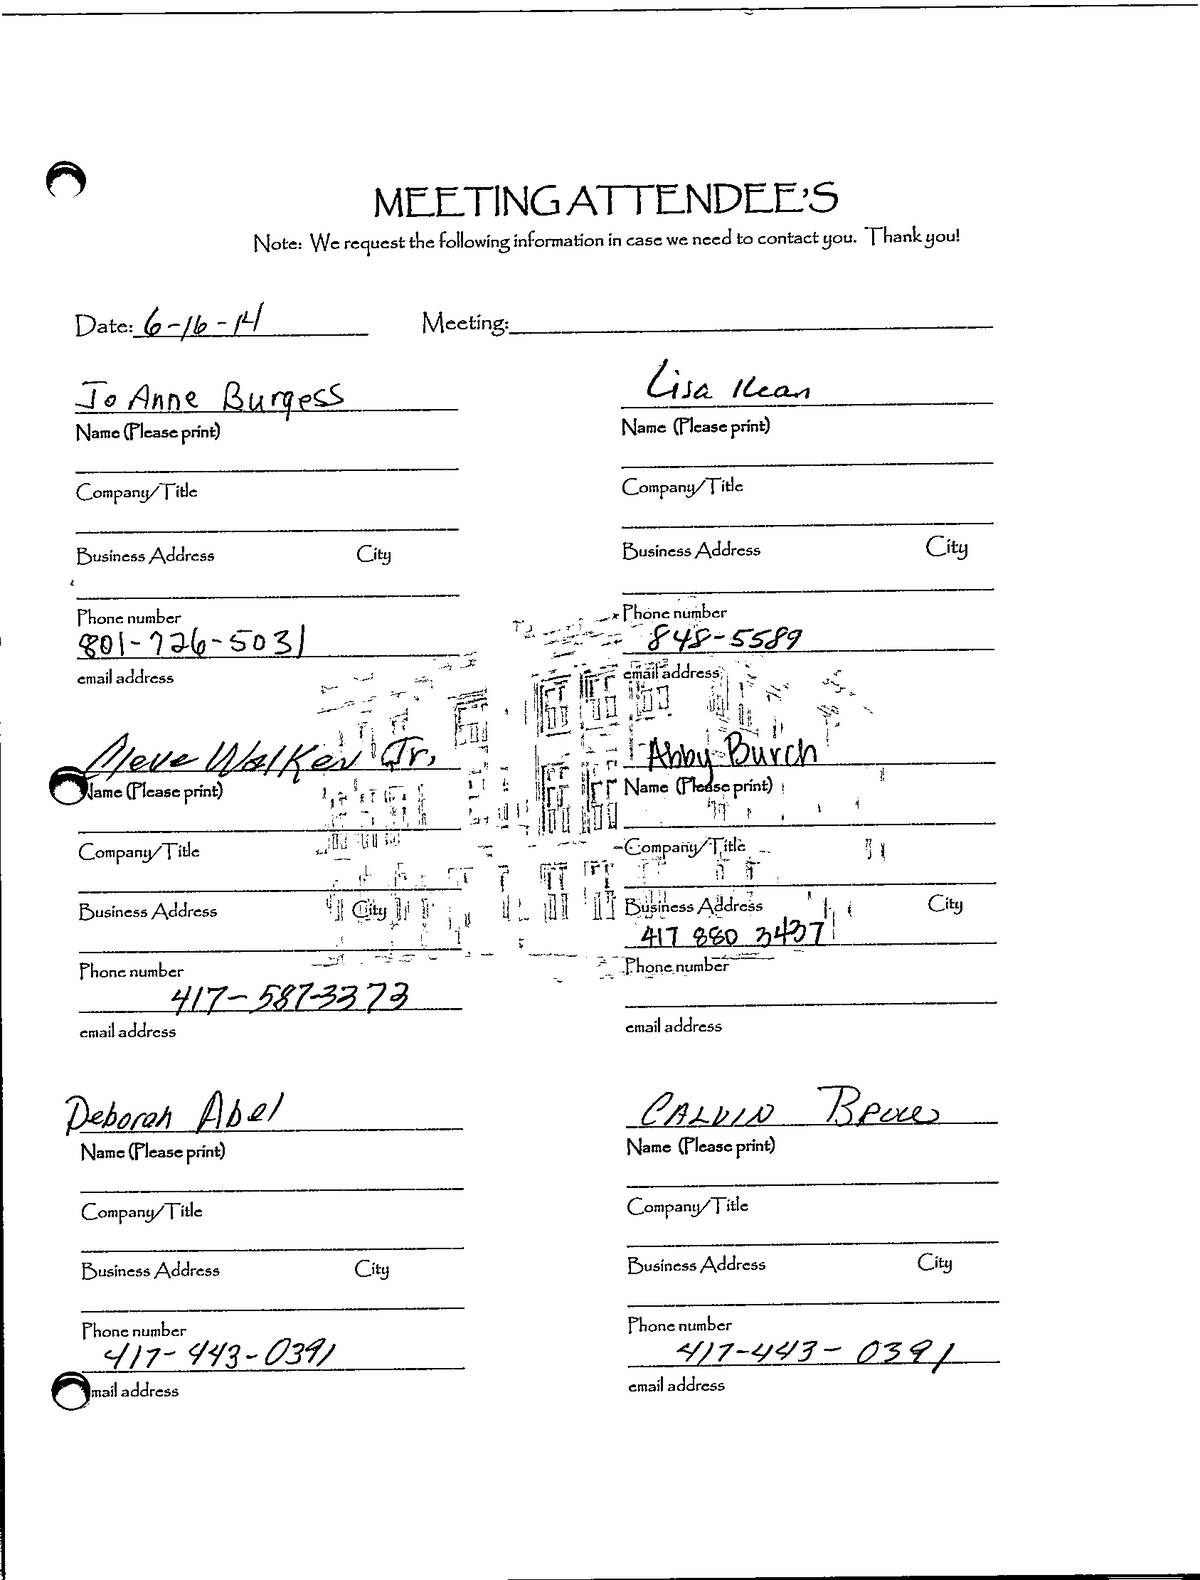 MEETING ATTENDEE'S
Note: We request the following information in case we need to contact you. Thank you!
Date: 6-16-14 Meeting:
Jo Anne Burgess
Name (Please print)
Company/Title
Business Address City
Phone number
801-726-5031
email address
Lisa Kean
Name (Please print)
Company/Title
Business Address City
Phone number
848-5589
email address
Cleve Walker Jr.
Name (Please print)
Company/Title
Business Address City
Phone number
417-587-3373
email address
Abby Burch
Name (Please print)
Company/Title
Business Address City
417 880 3437
Phone number
email address
Deborah Abel
Name (Please print)
Company/Title
Business Address City
Phone number
417-443-0391
email address
CALVIN
Name (Please print)
Company/Title
Business Address City
Phone number
417-443-0391
email address